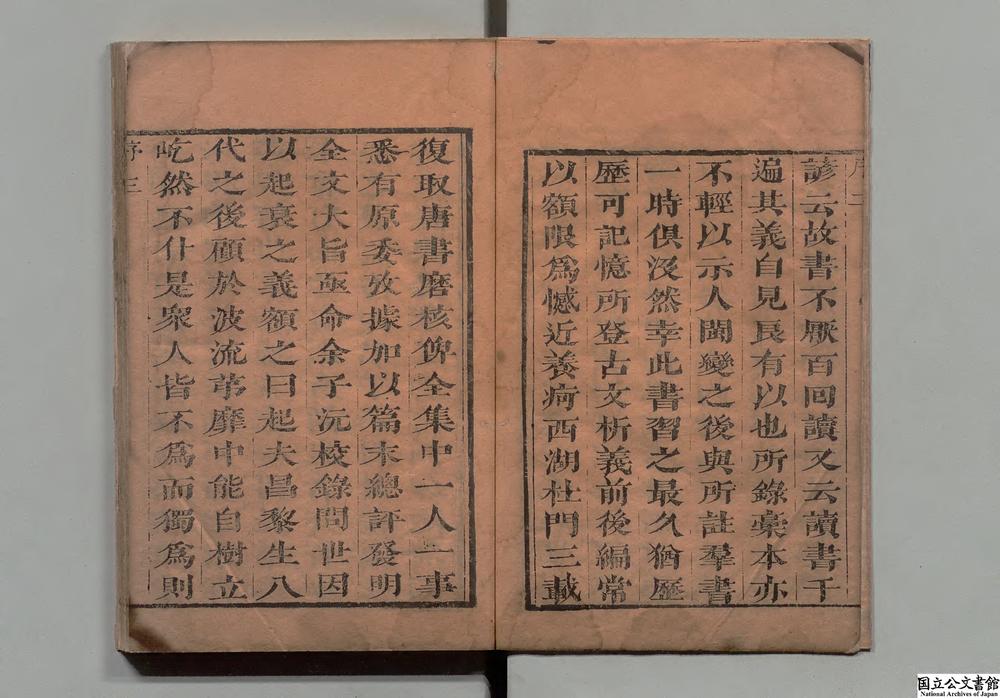 序二
諺云故書不厭百回讀又云讀書千
遍其義自見良有以也所錄稾本亦
不輕以示人閩變之後與所註羣書
一時俱沒然幸此書習之最久猶歷
歷可記憶所登古文析義前後編常
以額限爲憾近養疴西湖杜門三載
復取唐書磨核俾全集中一人一事
悉有原委攷據加以篇末總評發明
全文大旨亟命余子沅校錄問世因
以起衰之義額之曰起夫昌黎生八
代之後顧於波流茅靡中能自樹立
屹然不仆是衆人皆不爲而獨爲則
序 三
国立公文書館
National Archives of Japan